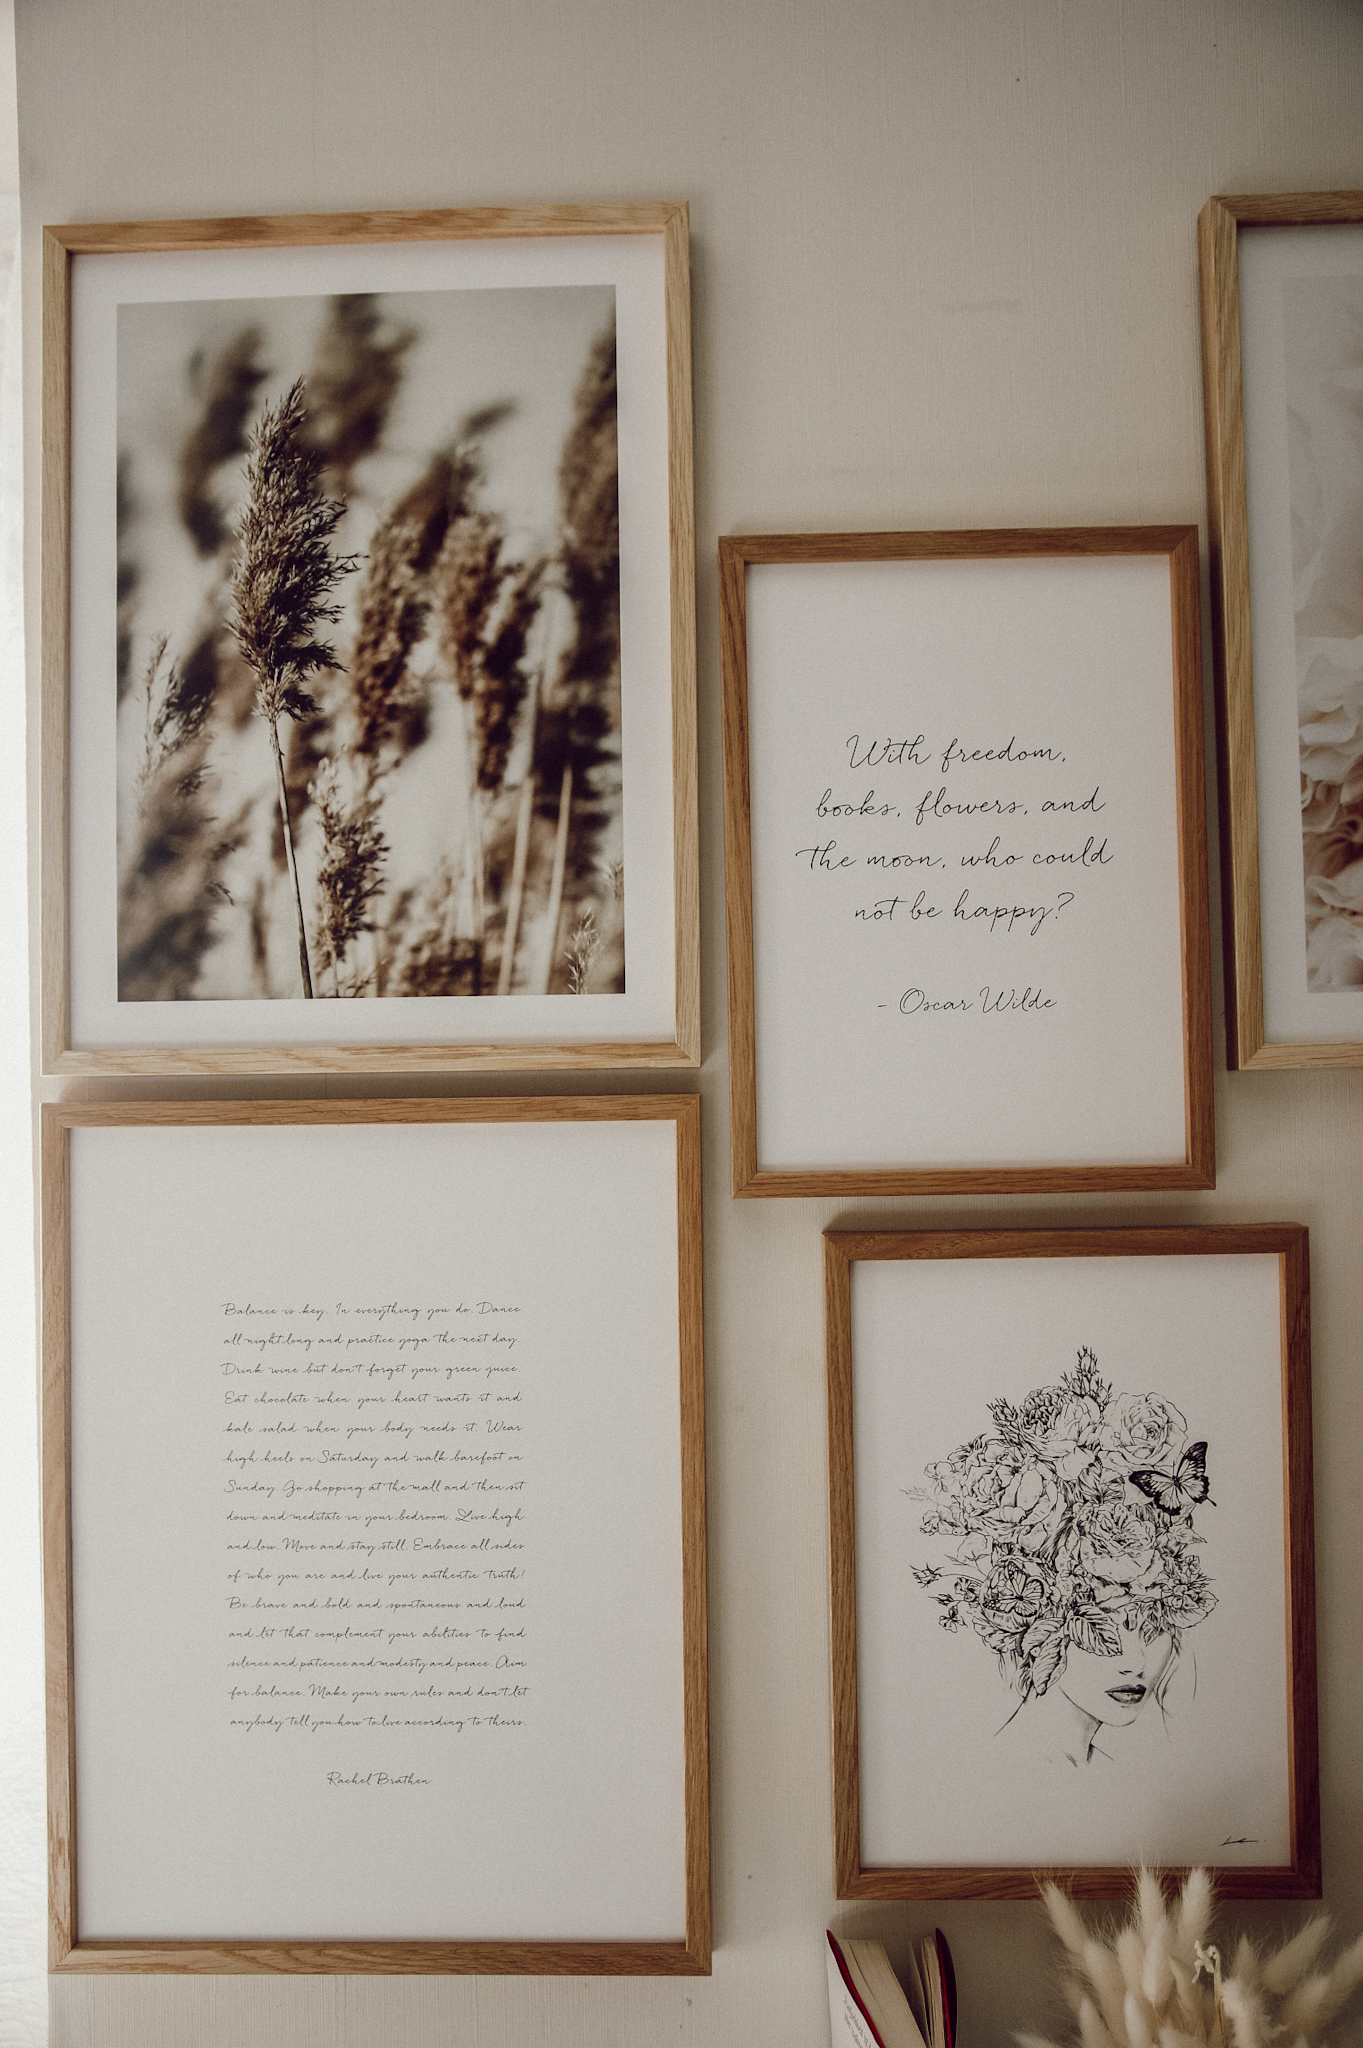 With freedom,
books, flowers, and
the moon, who could
not be happy?
- Oscar Wilde
Balance is key. In everything you do. Dance
all night long and practice yoga the next day.
Drink wine but don't forget your green juice.
Eat chocolate when your heart wants it and
kale salad when your body needs it. Wear
high heels on Saturday and walk barefoot on
Sunday. Go shopping at the mall and then sit
down and meditate in your bedroom. Live high
and low. Move and stay still. Embrace all sides
of who you are and live your authentic truth!
Be brave and bold and spontaneous and loud
and let that complement your abilities to find
silence and patience and modesty and peace. Aim
for balance. Make your own rules and don't let
anybody tell you how to live according to theirs.
Rachel Brathen